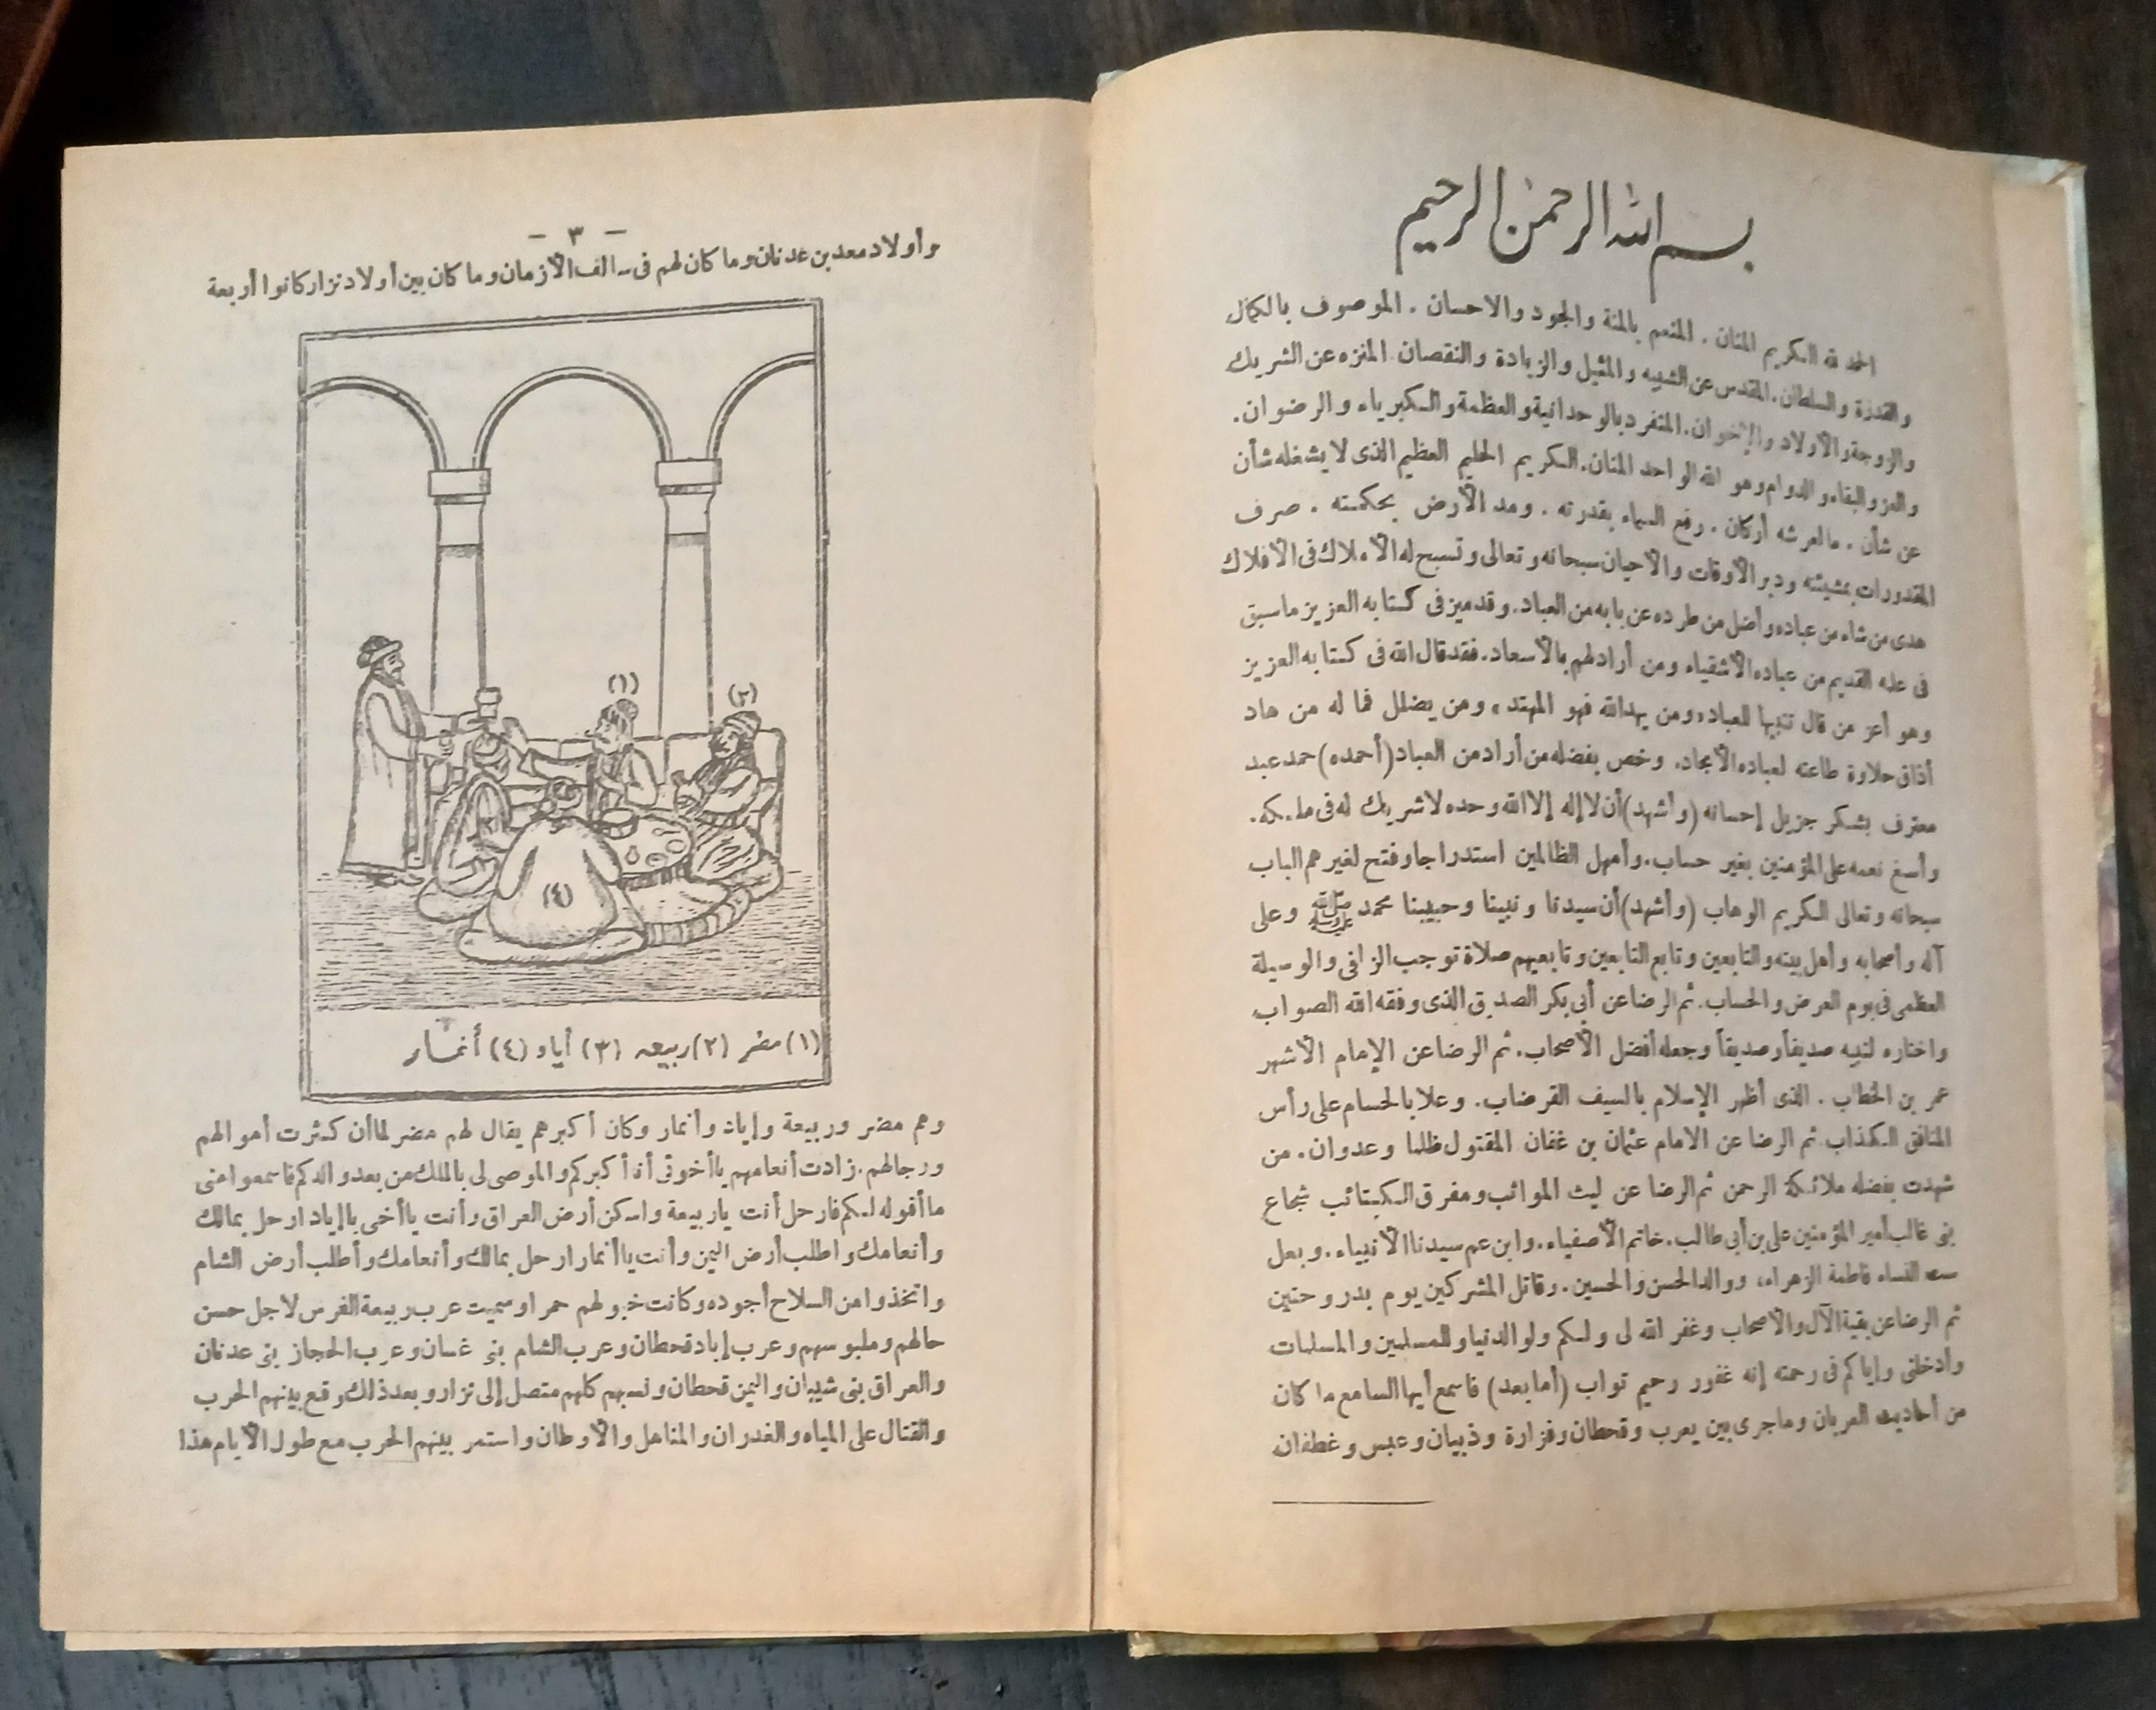 بسم الله الرحمن الرحيم
الحمد لله الكريم المنان . المنعم بالمنة والجود والاحسان . الموصوف بالكمال
والقدرة والسلطان . المقدس عن الشبيه والمثيل والزيادة والنقصان المنزه عن الشريك
والزوجة والأولاد والإخوان . المتفرد بالوحدانية والعظمة والكبرياء والرضوان .
والعز والبقاء والدوام وهو الله الواحد المنان . الكريم الحليم العظيم الذى لا يشغله شأن
عن شأن . ما لعرشه أركان . رفع السماء بقدرته . ومد الأرض بحكمته . صرف
المقدورات بمشيئته ودبر الأوقات والأحيان سبحانه وتعالى وتسبح له الأملاك فى الافلاك
هدى من شاء من عباده وأضل من طرده عن بابه من العباد . وقد ميز فى كتابه العزيز ما سبق
فى علمه القديم من عباده الأشقياء ومن أراد لهم بالأسعاد . فقد قال الله فى كتابه العزيز
وهو أعز من قال تنبيها للعباد «ومن يهد الله فهو المهتد» ومن يضلل فما له من هاد
أذاق حلاوة طاعته لعباده الأمجاد . وخص بفضله من أراد من العباد (أحمده) حمد عبد
معترف بشكر جزيل إحسانه (وأشهد) أن لا إله إلا الله وحده لا شريك له فى ملكه .
وأسبغ نعمه على المؤمنين بغير حساب . وأمهل الظالمين استدراجا وفتح لغيرهم الباب
سبحانه وتعالى الكريم الوهاب (وأشهد) أن سيدنا ونبينا وحبيبنا محمد ﷺ وعلى
آله وأصحابه وأهل بيته والتابعين وتابع التابعين وتابعيهم صلاة توجب الزلفى والوسيلة
العظمى فى يوم العرض والحساب . ثم الرضا عن أبي بكر الصديق الذى وفقه الله الصواب
واختاره لنبيه صديقاً وصديقاً وجعله أفضل الأصحاب . ثم الرضا عن الإمام الاشهر
عمر بن الخطاب . الذى أظهر الإسلام بالسيف القرضاب . وعلا بالحسام على رأس
المنافق الكذاب ثم الرضا عن الامام عثمان بن عفان المقتول ظلما وعدوان . من
شهدت بفضله ملائكة الرحمن ثم الرضا عن ليث المواثب ومفرق الكتائب شجاع
بنى غالب أمير المؤمنين على بن أبى طالب . خاتم الأصفياء . وابن عم سيدنا الأنبياء . وبعل
ست النساء فاطمة الزهراء، ووالد الحسن والحسين . وقاتل المشركين يوم بدر وحنين
ثم الرضا عن بقية الآل والأصحاب وغفر الله لى ولكم ولوالدينا وللمسلمين والمسلمات
وأدخلنى وإياكم فى رحمته إنه غفور رحيم تواب (أما بعد) فاسمع أيها السامع ما كان
من أحاديث العربان وما جرى بين يعرب وقحطان وفزارة وذبيان وعبس وغطفان
— ٣ —
وأولاد معد بن عدنان وما كان لهم فى سالف الأزمان وما كان بين أولاد نزار كانوا أربعة
(١)
(٢)
(٤)
(١) مضر (٢) ربيعه (٣) أياد (٤) أنمار
وهم مضر وربيعة وإياد وأنمار وكان أكبرهم يقال لهم مضر لما أن كثرت أموالهم
ورجالهم . زادت أنعامهم يا أخوتى أنا أكبركم والموصى لى بالملك من بعد والدكم فاسمعوا منى
ما أقوله لكم فارحل أنت ياربيعة واسكن أرض العراق وأنت يا أخى يا إياد ارحل بمالك
وأنعامك واطلب أرض اليمن وأنت يا أنمار ارحل بمالك وأنعامك وأطلب أرض الشام
واتخذوا من السلاح أجوده وكانت خيولهم حمرا وسميت عرب ربيعة الفرس لاجل حسن
حالهم وملبوسهم وعرب إياد قحطان وعرب الشام بنى غسان وعرب الحجاز بنى عدنان
والعراق بنى شيبان واليمن قحطان ونسبهم كلهم متصل إلى نزار وبعد ذلك وقع بينهم الحرب
والقتال على المياه والغدران والمناهل والأوطان واستمر بينهم الحرب مع طول الأيام هذا